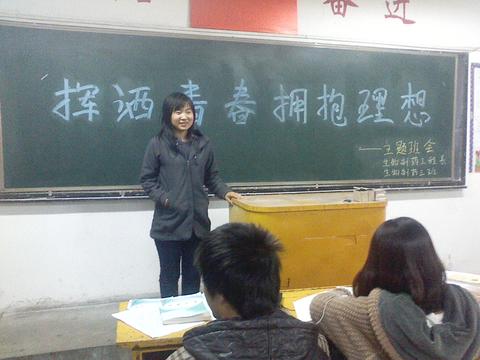 奋 进
挥洒青春拥抱理想
——主题班会
生物制药工程系
生物制药三班